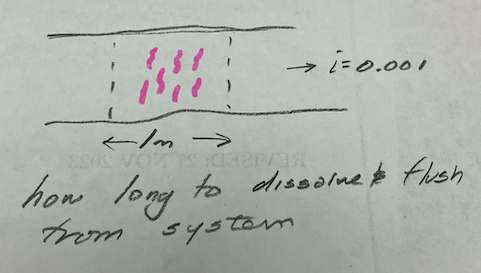 → i=0.001
← 1m →
REVISED: 27 NOV 2023
how long to dissolve & flush
from system